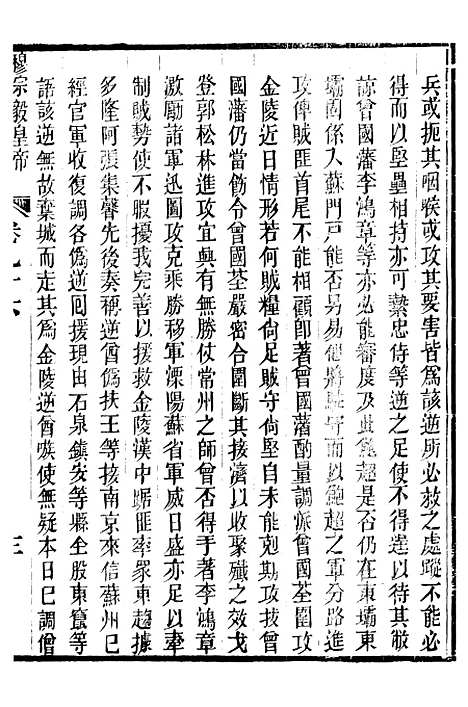 兵或扼其咽喉或攻其要害皆爲該逆所必救之處蹤不能必
得而以堅壘相持亦可縶忠侍等逆之足使不得達以待其敝
諒曾國藩李鴻章等亦必能審度及此鮑超是否仍在東壩東
壩關係入蘇門戶能否另易他將駐守而以鮑超之軍分路進
攻俾賊匪首尾不能相顧卽著曾國藩酌量調派曾國荃圍攻
金陵近日情形若何賊糧尙足賊守尙堅自未能剋期攻拔曾
國藩仍當令曾國荃嚴密合圍斷其接濟以收聚殲之效戈
登郭松林進攻宜興有無勝仗常州之師曾否得手著李鴻章
激勵諸軍迅圖攻克乘勝移軍溧陽蘇省軍威日盛亦足以牽
制賊勢使不暇擾我完善以援救金陵漢中踞匪率眾東趨據
多隆阿張集馨先後奏稱逆酋僞扶王等接南京來信蘇州已
經官軍收復調各僞逆囘援現由石泉鎭安等縣全股東竄等
語該逆無故棄城而走其爲金陵逆酋嗾使無疑本日已調僧
穆宗毅皇帝 卷九十六 三